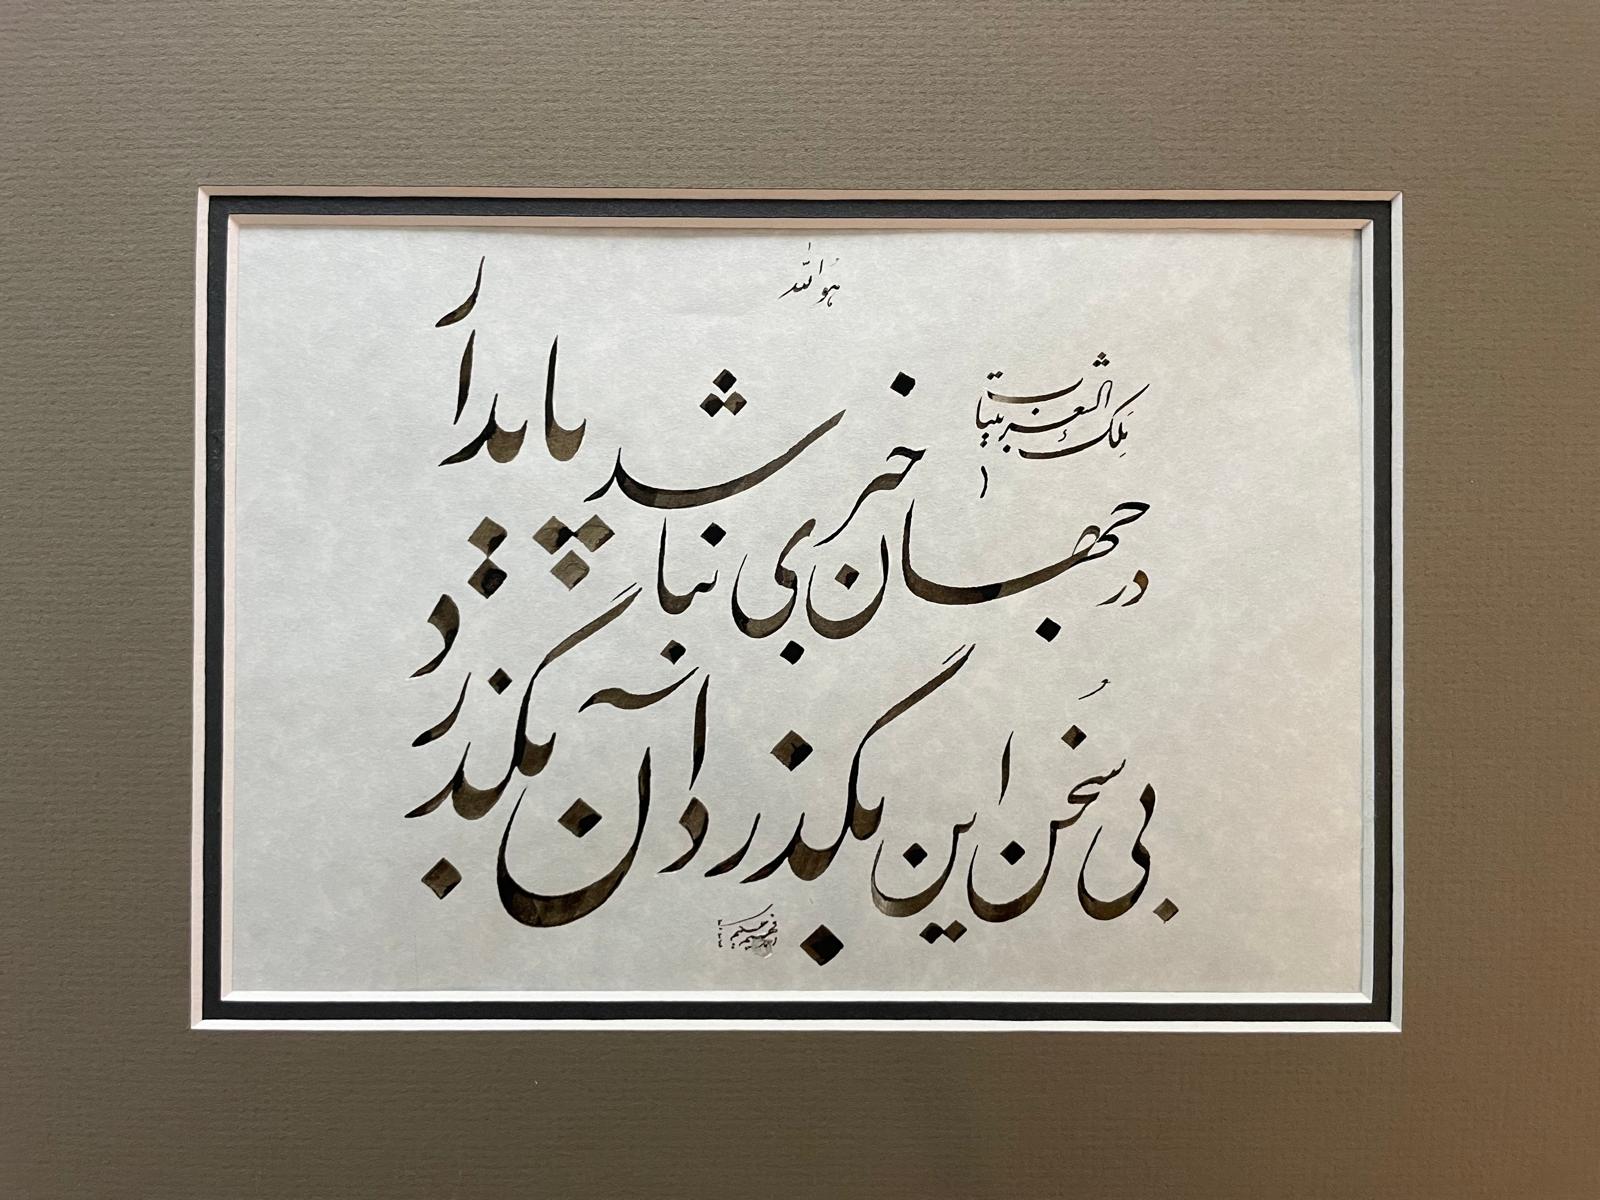 هوالله
ملک الشعرا
در جهان خبری نباشد پایدار
بی سُخن این بگذرد آن بگذرد